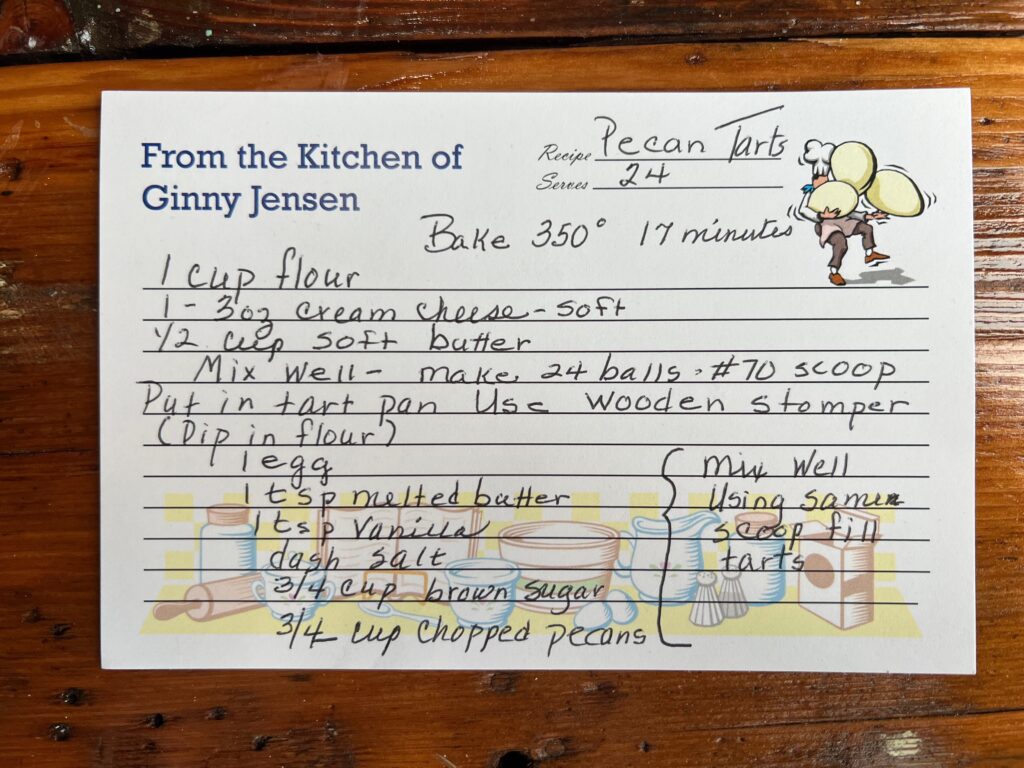 From the Kitchen of
Ginny Jensen
Recipe Pecan Tarts
Serves 24
Bake 350° 17 minutes
1 cup flour
1 - 3oz cream cheese - soft
1/2 cup soft butter
Mix well - make 24 balls. #70 scoop
Put in tart pan Use wooden stomper
(Dip in flour)
1 egg
1 tsp melted butter
1 tsp vanilla
dash salt
3/4 cup brown sugar
3/4 cup chopped pecans
Mix well
Using same
scoop fill
tarts